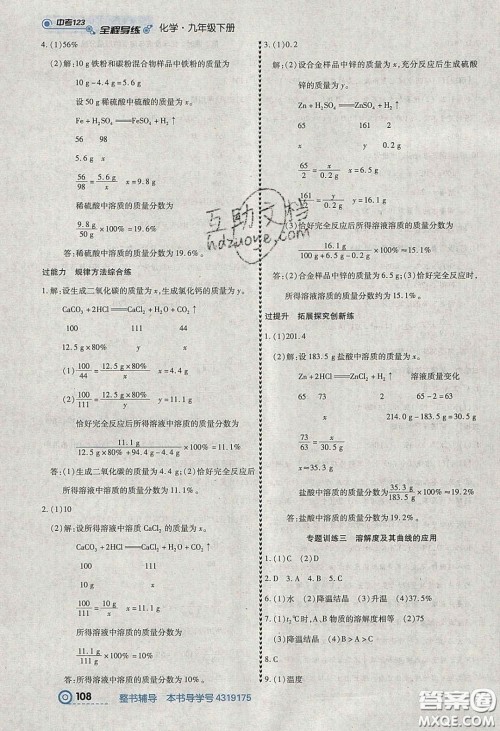 中考123
全程导练 化学·九年级下册
4.(1)56%
(2)解:设 10 g 铁粉和碳粉混合物样品中铁粉的质量为
5.6 g
设 50 g 稀硫酸中硫酸的质量为 x。
Fe + H₂SO₄ ══ FeSO₄ + H₂↑
56 98
5.6 g x
56/98 = 5.6 g/x x = 9.8 g
稀硫酸中溶质的质量分数为
9.8 g/50 g × 100% = 19.6%
答:稀硫酸中溶质的质量分数为 19.6%。
过能力 规律方法综合练
1.解:设生成二氧化碳的质量为 x,生成氯化钙的质量为 y。
CaCO₃ + 2HCl ══ CaCl₂ + H₂O + CO₂↑
100 111 44
12.5 g×80% y x
(1) 100/44 = 12.5 g×80%/x x = 4.4 g
(2) 100/111 = 12.5 g×80%/y y = 11.1 g
恰好完全反应后所得溶液中溶质的质量分数为
11.1 g/(12.5 g×80% + 94.4 g - 4.4 g) × 100% = 11.1%
答:(1)生成二氧化碳的质量为 4.4 g;(2)恰好完全反应后
所得溶液中溶质的质量分数为 11.1%。
2.(1)10
(2)解:设所得溶液中溶质 CaCl₂ 的质量为 x。
CaCO₃ + 2HCl ══ CaCl₂ + H₂O + CO₂↑
100 111
10 g x
100/111 = 10 g/x x = 11.1 g
所得溶液中溶质的质量分数为
× 100% = 10%
答:所得溶液中溶质的质量分数为 10%。
3.(1)0.2
解:(2)设合金样品中锌的质量为 x,充分反应后生成硫酸
锌的质量为 y。
Zn + H₂SO₄ ══ ZnSO₄ + H₂↑
65 161 2
x y 0.2 g
65/2 = x/0.2 g x = 6.5 g
161/2 = y/0.2 g y = 16.1 g
(3)恰好完全反应后所得溶液中溶质的质量分数为
16.1 g × 100% = 15.1%
答:(2)合金样品中锌的质量为 6.5 g;(3)恰好完全反应后
所得溶液中溶质的质量分数约为 15.1%。
过提升 拓展探究创新练
1.(1)201.4
(2)解:设 183.5 g 盐酸中溶质的质量为 x。
Zn + 2HCl ══ ZnCl₂ + H₂↑ 溶液质量变化
65 73 65-2=63
x 214.0 g - 183.5 g = 30.5 g
73/63 = x/30.5 g
x ≈ 35.3 g
盐酸中溶质的质量分数为 35.3 g/183.5 g × 100% ≈ 19.2%
答:盐酸中溶质的质量分数约为 19.2%。
专题训练三 溶解度及其曲线的应用
1.(1)C (2)D
2.D 3.A 4.B 5.D
6.(1)水 (2)降温结晶 (3)升温 (4)37.5%
7.(1)t₂℃时,A、B物质的溶解度相等 (2)75
(3)降温结晶 (4)C
8.C
9.(1)温度
互助文档
hdzuoye.com
108 整书辅导 本书导学号 4319175
答案圈
MXQE.COM